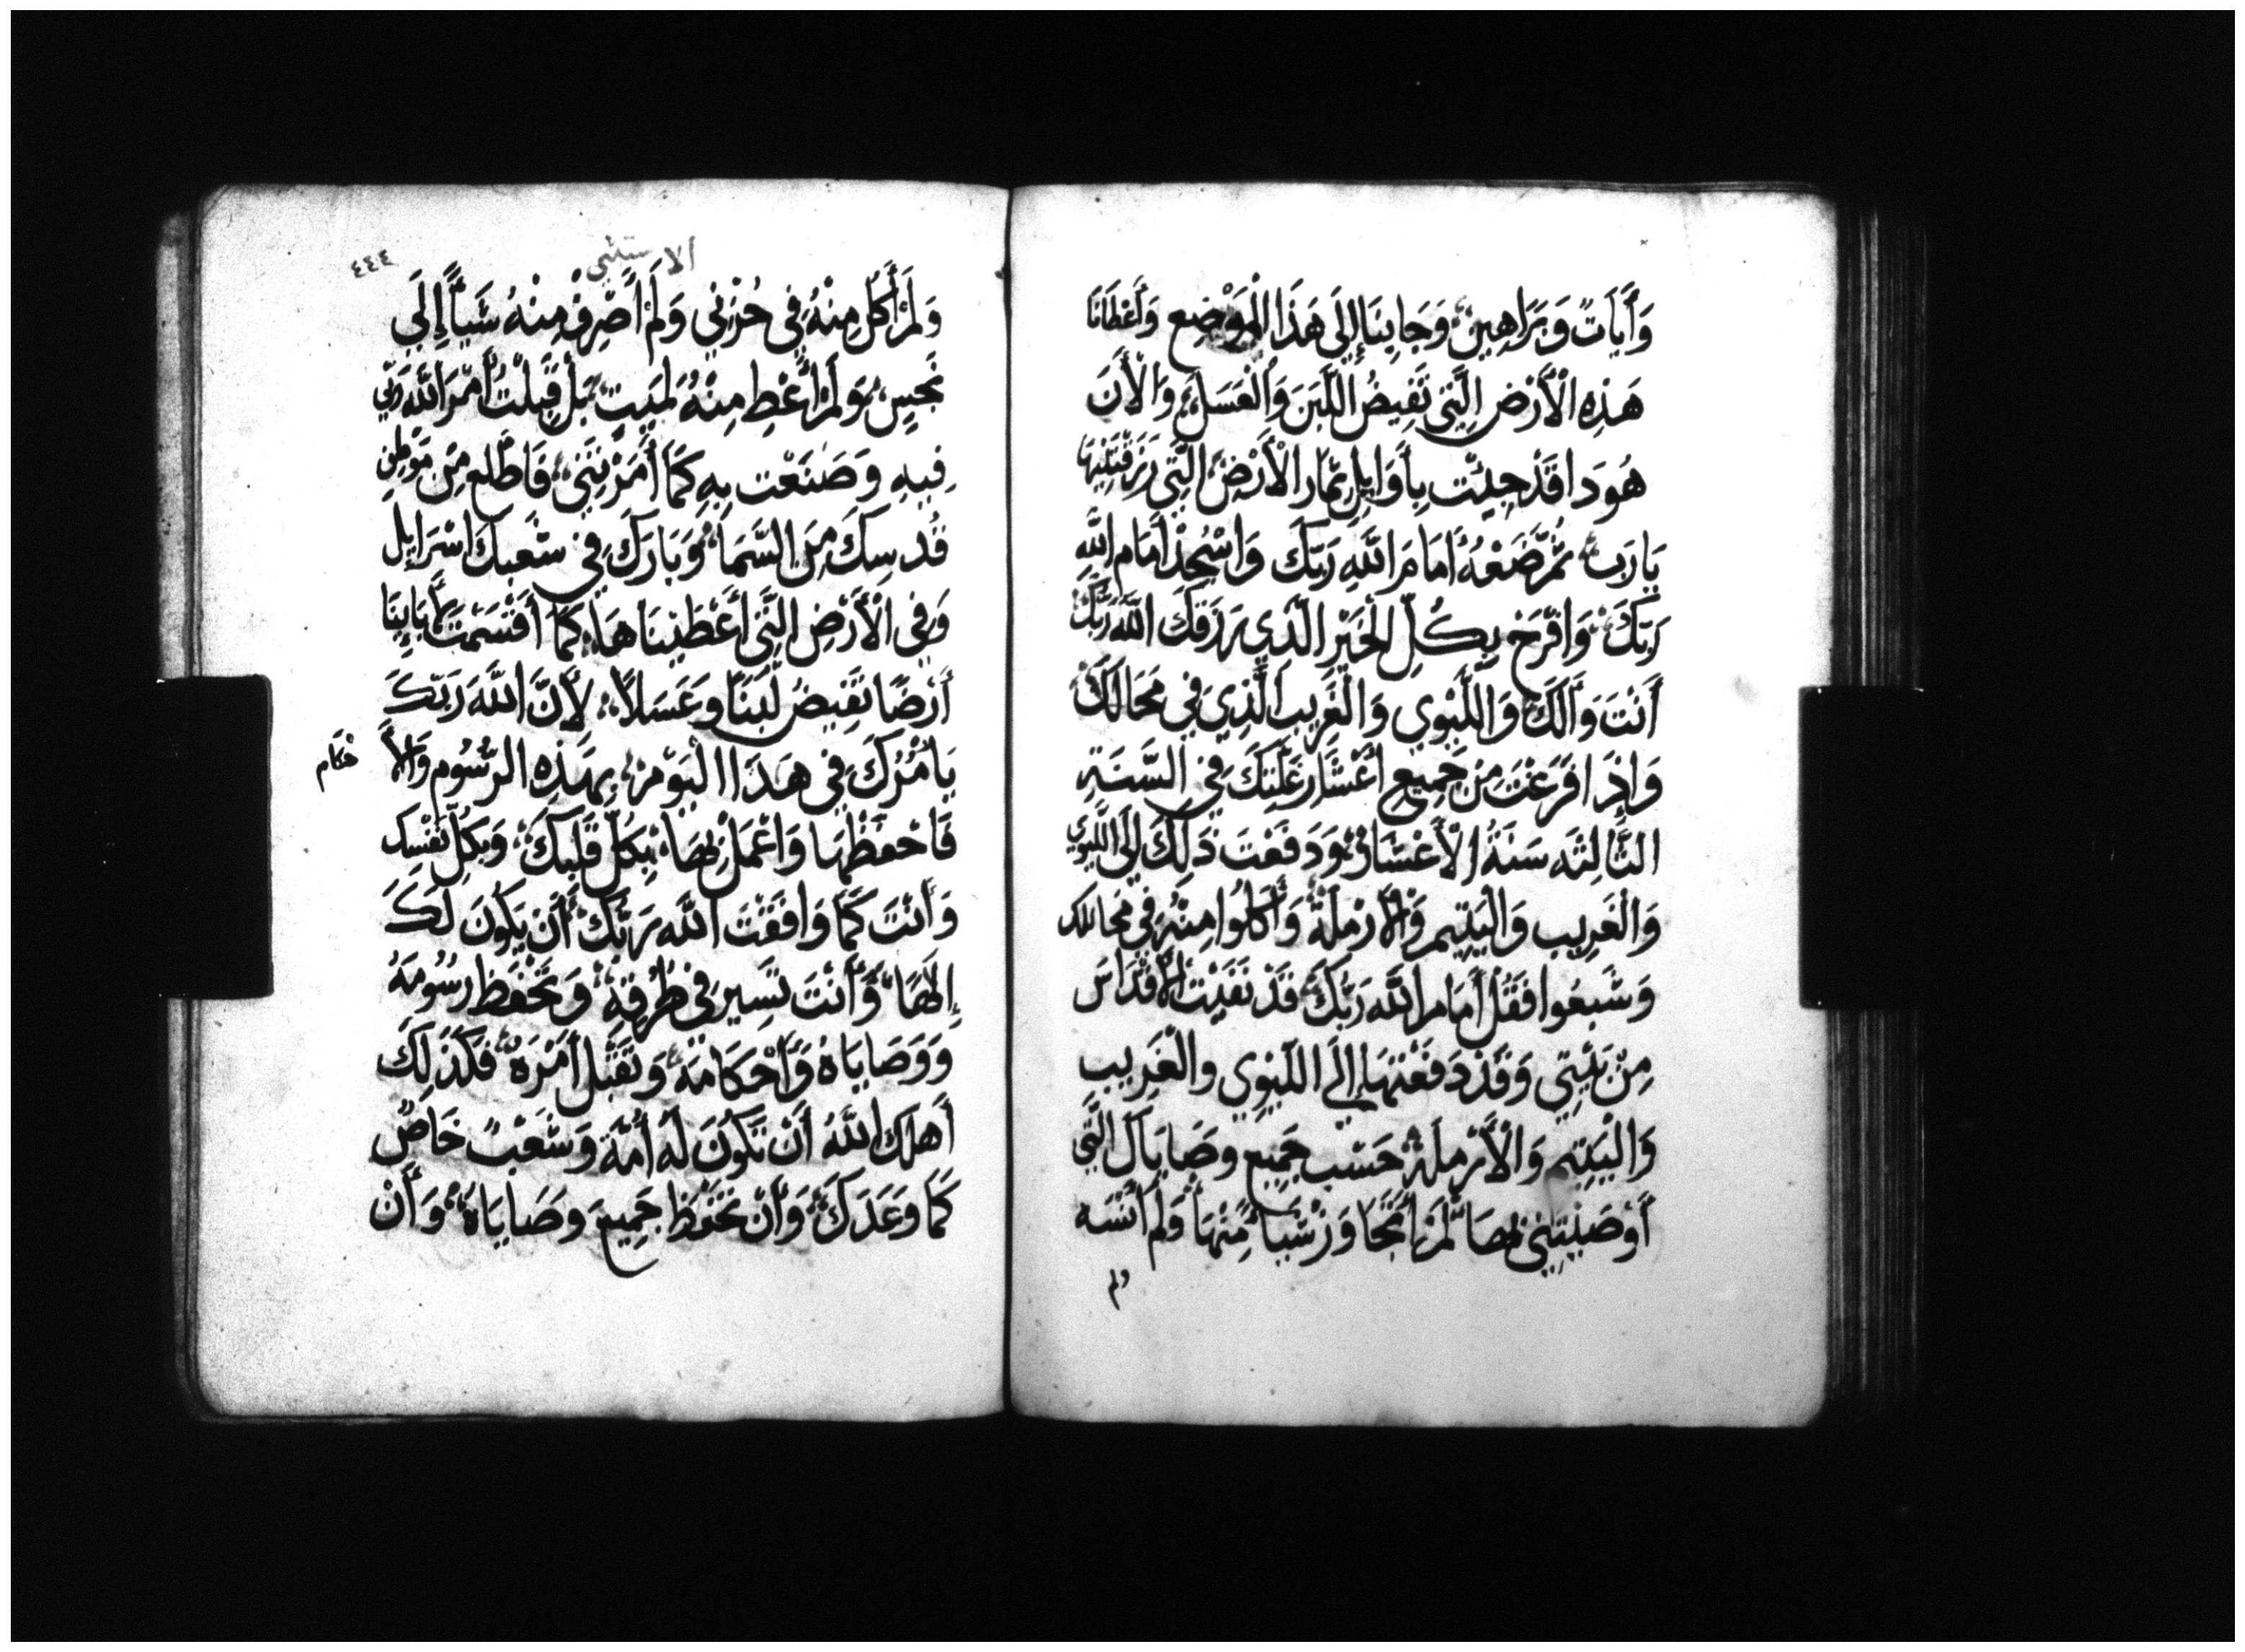 وَأَيَاتً وَبَرَاهِينْ وَجَابِنَا إِلَي هَذَا الْمَوْضِع وَأَعْطَانَا
هَذِهِ الْأَرْضِ الَّتِي تَفِيضُ اللَّبَنَ وَالْعَسَلَ وَالْأَنَ
هُوَدَا قَدْ جِيْت بِأَوَايِلِ ثمَار الْأَرْضِ الَّتِي رَزَقْتَنِيهَا
يَا رَب ثُمَّ ضَعْهُ أَمَامَ اللَّهِ رَبّكَ وَاسْجُدْ أَمَام اللَّهِ
رَبّكَ وَافْرَح بِكُلِّ الْخَيْرِ الَّذِي رَزَقَكَ اللَّه رَبّكَ
أَنْتَ وَآلَكَ وَاللَّيْوِي وَالْغَرِيب الَّذِي فِي مَحَالكَ
وَإِذَا فَرَغْتَ مِنْ جَمِيعِ أَعْشَار غَلَّتِكَ فِي السَّنَةِ
الثَّالِثَه سَنَةُ الْأَعْشَارْ وَدَفَعْتَ ذَلِكَ إِلَى اللَّيْوِي
وَالْغَرِيب وَالْيَتِيم وَالْأَرْمَلَةْ وَأَكَلُوا مِنْهُ فِي مَحَالك
وَشَبِعُوا فَقُلْ أَمَام اللَّه رَبّكَ قَدْ نَقَيْت الْأَقْدَاسَ
مِنْ بَيْتِي وَقَدْ دَفَعْتهَا إِلَى اللَّيْوِي وَالْغَرِيب
وَالْيَتِيمِ وَالْأَرْمَلَةْ حَسْب جَمِيع وصَايَاكَ الَّتِي
أَوْصَيْتِنِي بِهَا لَمْ أَتَجَاوَزْ شَيْا مِّنْهَا وَلَمْ أَنْسَه
ولم
الاستثني
٤٤٤
وَلَمْ أَكُل مِنْهُ فِي حُزْنِي وَلَمْ أَصْرِفْ مِنْهُ شَيْاً إِلَي
نَجِسٍ وَلَمْ أُعْطِ مِنْهُ لِمَيِتٍ بَلْ قَبِلْتُ أَمْرَ اللَّه رَبِّي
فِيهِ وَصَنَعْت بِهِ كَمَا أَمَرْتَنِي فَاطَّلع مِنْ مَوْطِنِ
قُدسِكَ مِنَ السَّمَا وَبَارَك فِي شَعبكَ اسْرَايِل
وَفِي الْأَرْضِ الَّتِي أَعْطَيْنَاهَا كَمَا أَقْسَمْتَ لأَبَايِنَا
أَرْضًا تَفِيضُ لَبَنًا وَعَسَلاً لِأَنَّ اللَّهَ رَبّكَ
يَامُرُكَ فِي هَذَا الْيَوْمْ بِهَذِهِ الرُّسُوم وَالْأَ
حْكَام
فَاحْفَظْهَا وَاعْمَلْ بِهَا بِكُلِّ قَلْبِكَ وَبِكُلِّ نَفْسِك
وَأَنْتَ كَمَا وَافَقْتَ اللَّه رَبَّكَ أَنْ يَكُونَ لَكَ
إِلَهَا وَأَنْتَ تَسِير فِي طُرُقِهْ وَتَحْفَظ رسُومَهُ
وَوَصَايَاهُ وَأَحْكَامَهُ وَتَقْبَل أَمْرَهْ فَكَذَلِكَ
أَهلَكَ اللَّهُ أَنْ تَكُونَ لَهُ أُمَّة وَشَعْبً خَاصً
كَمَا وَعَدَكَ وَأَنْ تَحْفَظ جَمِيعَ وصَايَاهْ وَأَنْ